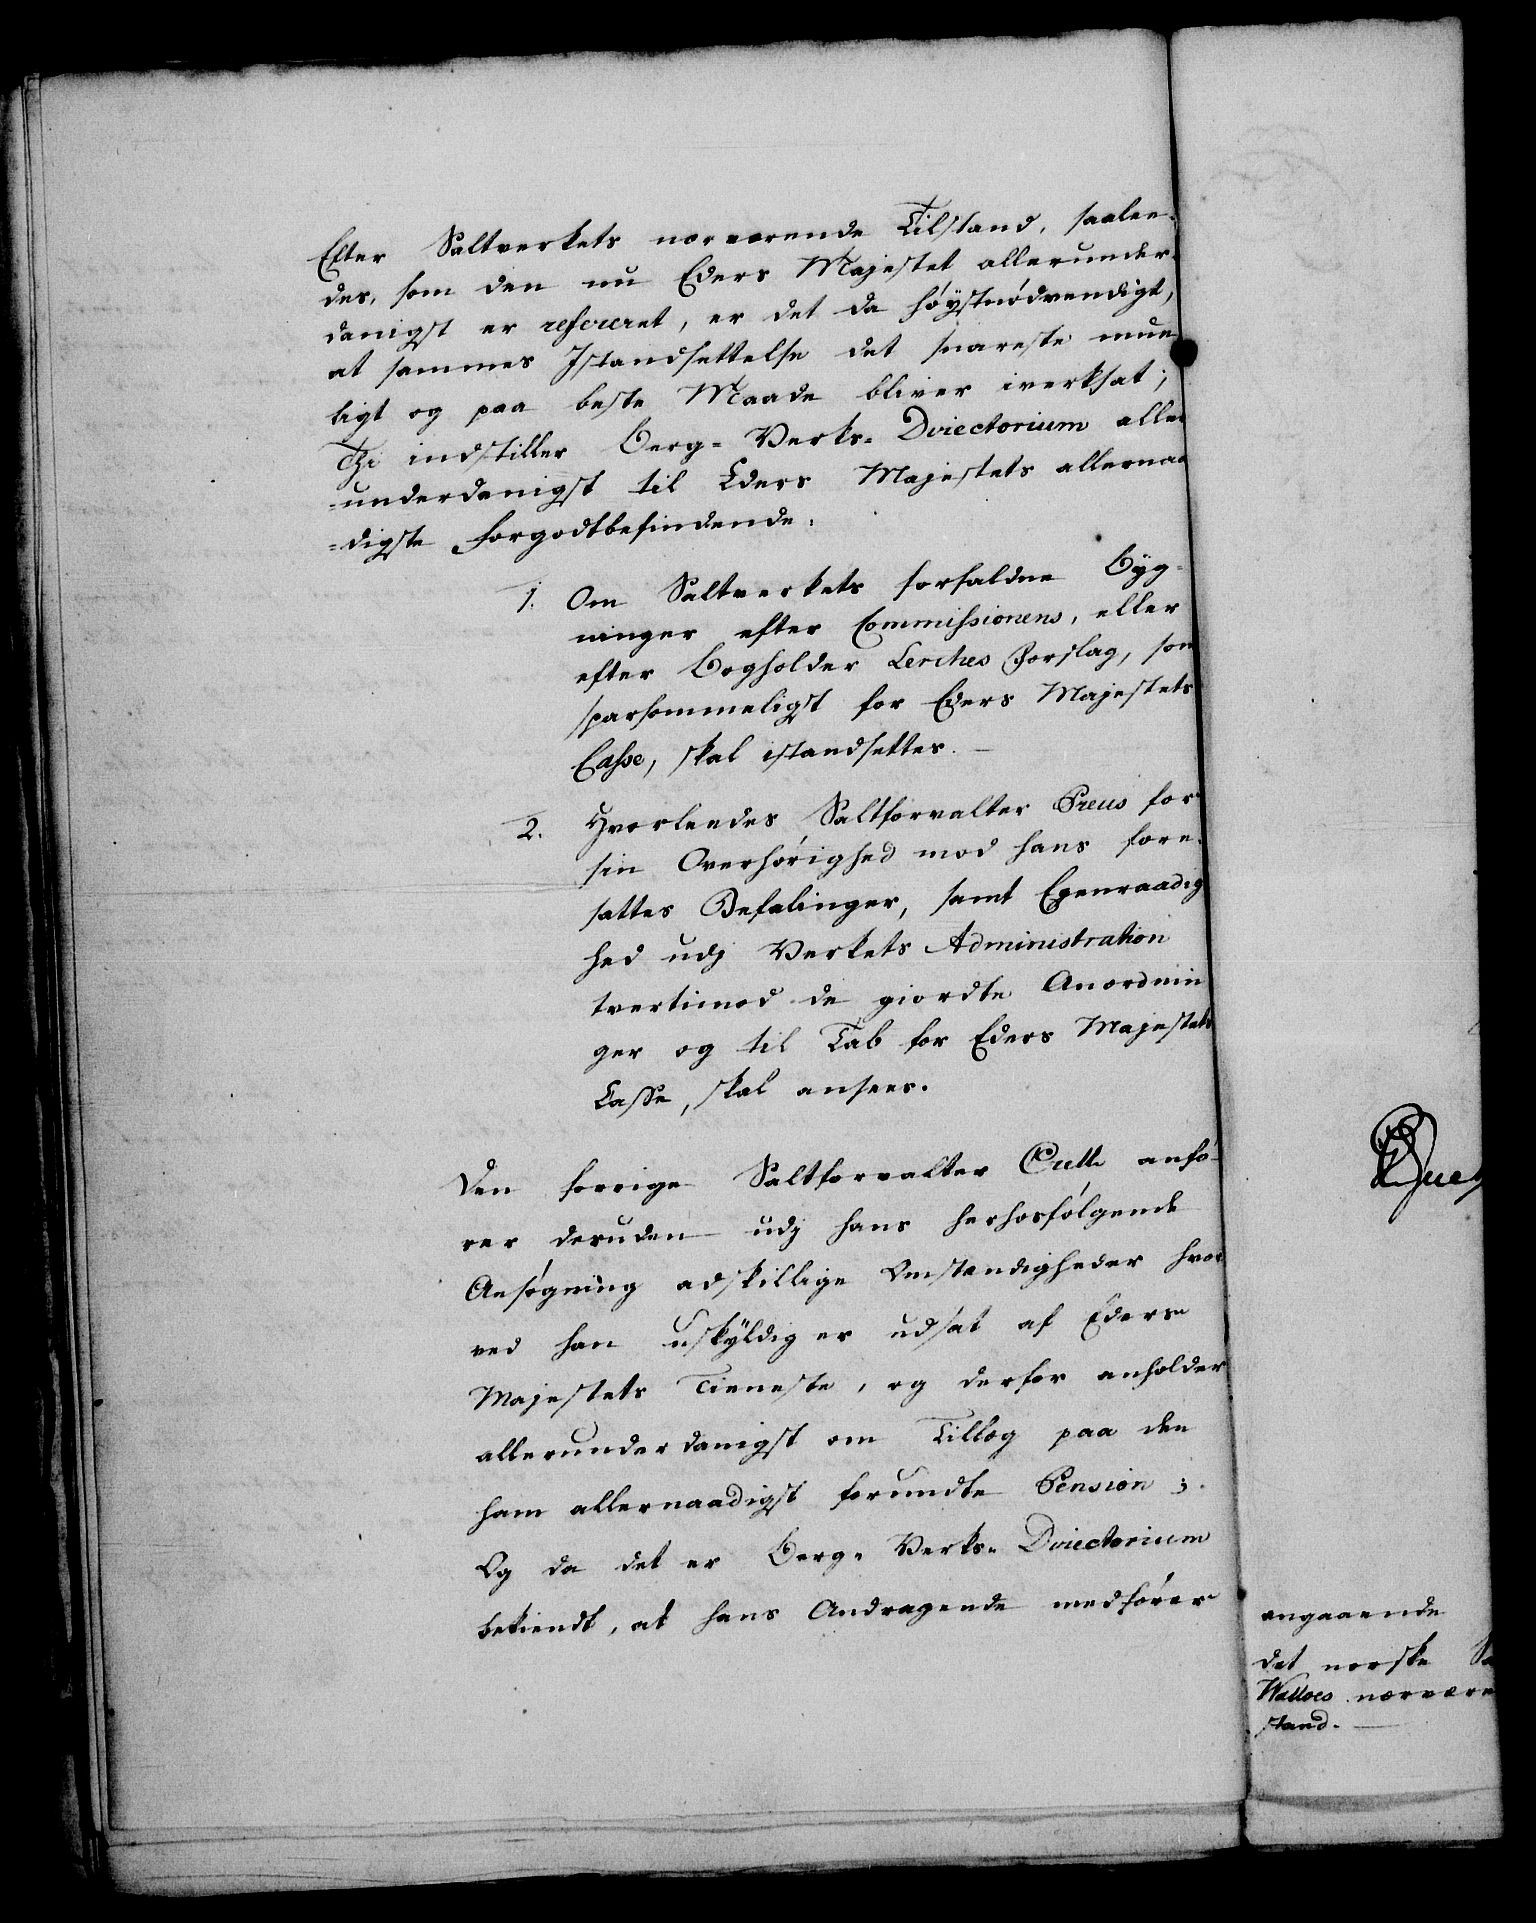 Efter Saltverkets nærværende Tilstand, saalee-
des, som den nu Eders Majestet allerunder-
danigst er refereret, er det da høÿstnødvendigt,
at sammes Istandsettelse det snareste mue
ligt og paa beste Maade bliver iverksat;
Thi indstiller Berg-Verks-Directorium aller
=underdanigst til Eders Majestets allernaa
=digste Forgodtbefindende:
1. Om Saltverkets forfaldne Byg-
ninger efter Commissionens, eller
efter Bogholder Lerches Forslag, som
sparsommeligst for Eders Majestets
Casse, skal istandsettes. —
2. Hvorleedes Saltforvalter Preus for
sin Overhørighed mod hans fore-
sattes Befalinger, samt Egenraadig
hed udj Verkets Administration
tvertimod de giordte Anordnin
ger og til Tab for Eders Majestets
Casse, skal ansees.
Den forrige Saltforvalter anfø-
rer desuden udj hans herhosfølgende
Ansøgning adskillige Omstændigheder hvor
ved han uskÿldig er udsat af Eders
Majestets Tieneste, og derfor anholder
allerunderdanigst om Tillæg paa den
ham allernaadigst forundte Pension;
Og da det er Berg-Verks-Directorium
bekiendt, at hans Andragende medfører
angaaende
det norske
Walloes nærvære
stand. —